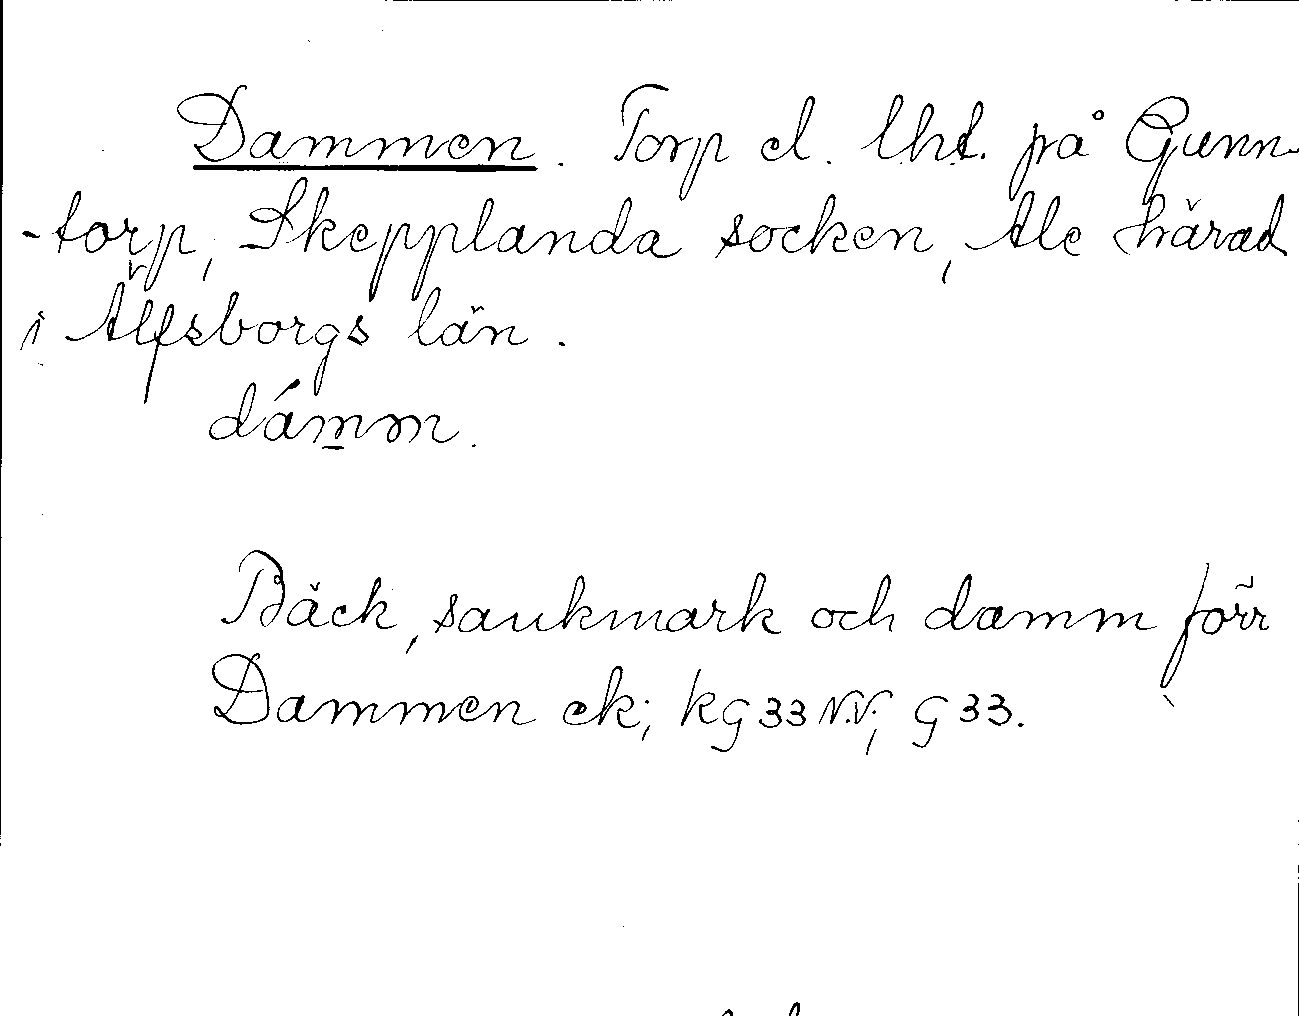 Dammen. Torp el. lht. på Gunn-
-torp, Skepplanda socken, Ale härad
i Älfsborgs län.
dámm.
Bäck, sankmark och damm förr
Dammen ek; kg 33 N.V; G 33.